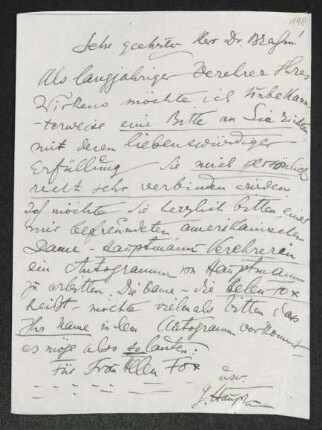 Sehr geehrter Herr Dr. Brahm!
Als langjähriger Verehrer Ihres
Wirkens möchte ich unbekann-
terweise eine Bitte an Sie richten
mit deren liebenswürdiger
Erfüllung Sie mich persönlich
recht sehr verbinden würden
Ich möchte Sie herzlich bitten einer
mir befreundeten amerikanischen
Dame - Hauptmann Verehrerin
ein Autogramm von Hauptmann
zu erbitten. Die Dame - die Helen Fox
heißt - möchte vielmals bitten, dass
Ihr Name in dem Autogramm vorkommt
es möge also so lauten:
Für Frau Helen Fox
usw.
G. Haupt